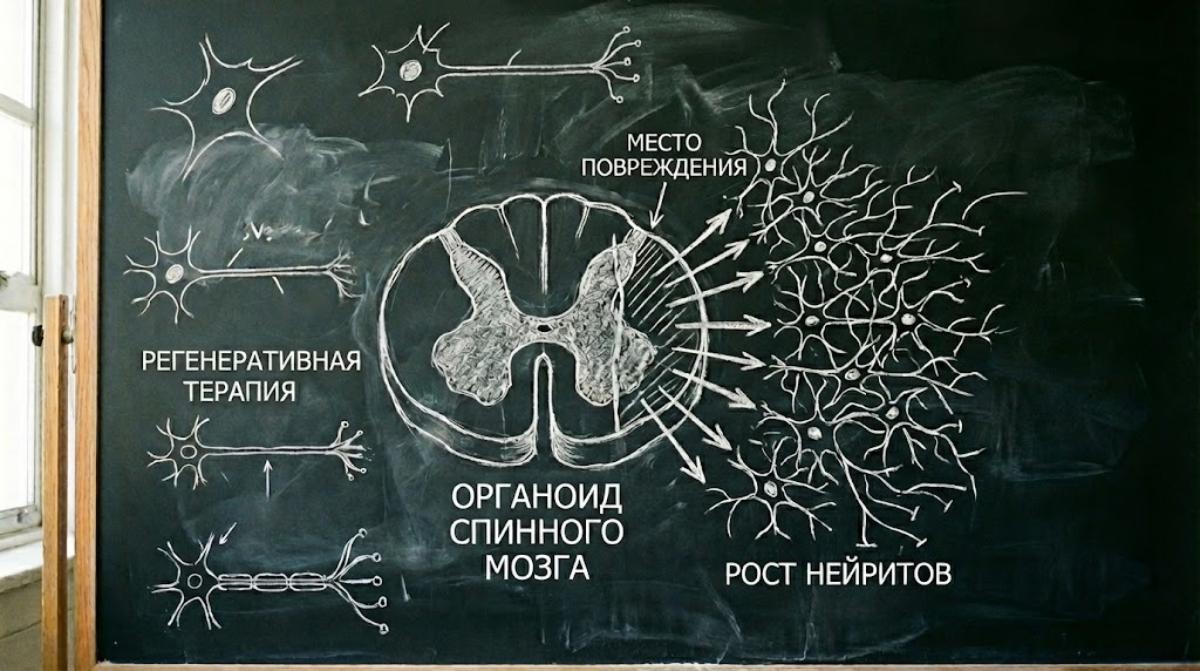 МЕСТО
ПОВРЕЖДЕНИЯ
РЕГЕНЕРАТИВНАЯ
ТЕРАПИЯ
ОРГАНОИД
СПИННОГО
МОЗГА
РОСТ НЕЙРИТОВ